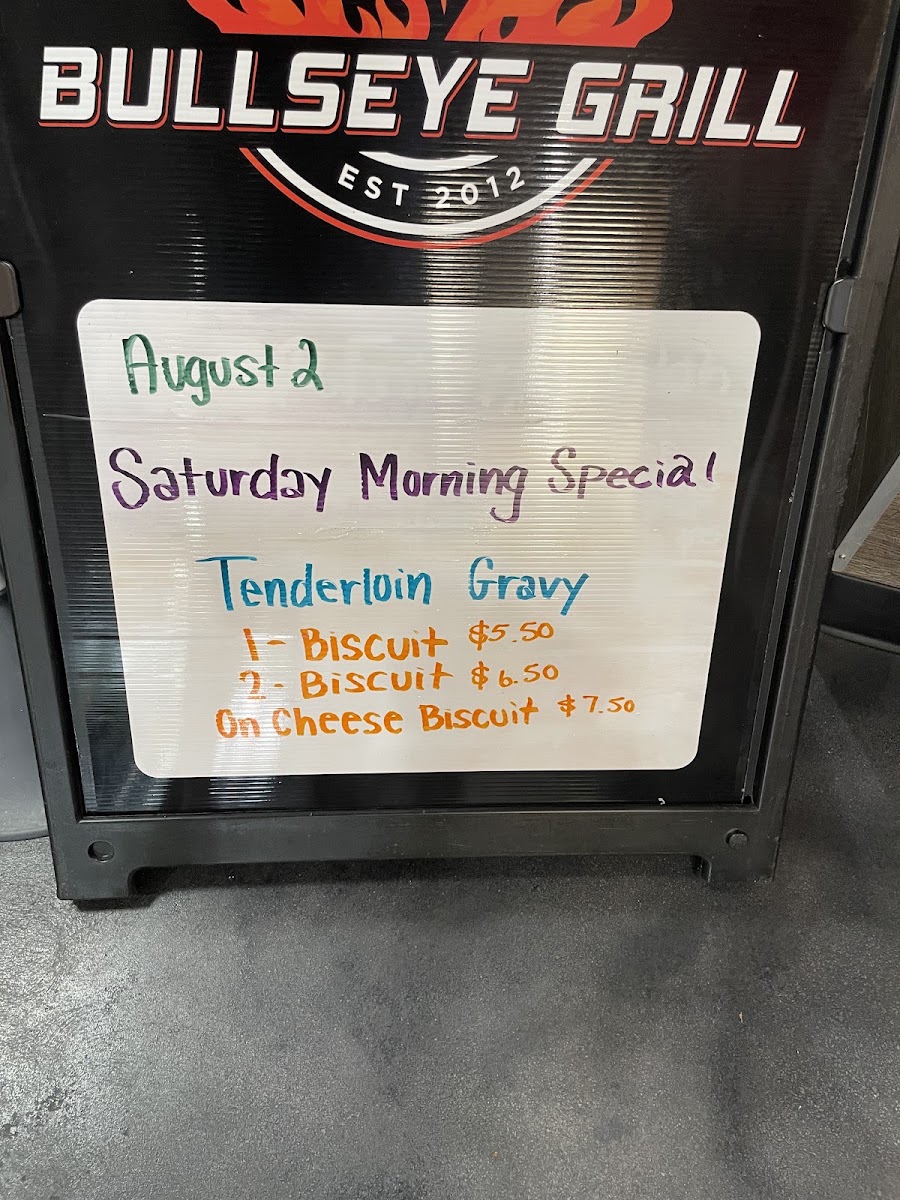 BULLSEYE GRILL
EST 2012
August 2
Saturday Morning Special
Tenderloin Gravy
1 - Biscuit $5.50
2 - Biscuit $6.50
On Cheese Biscuit $7.50